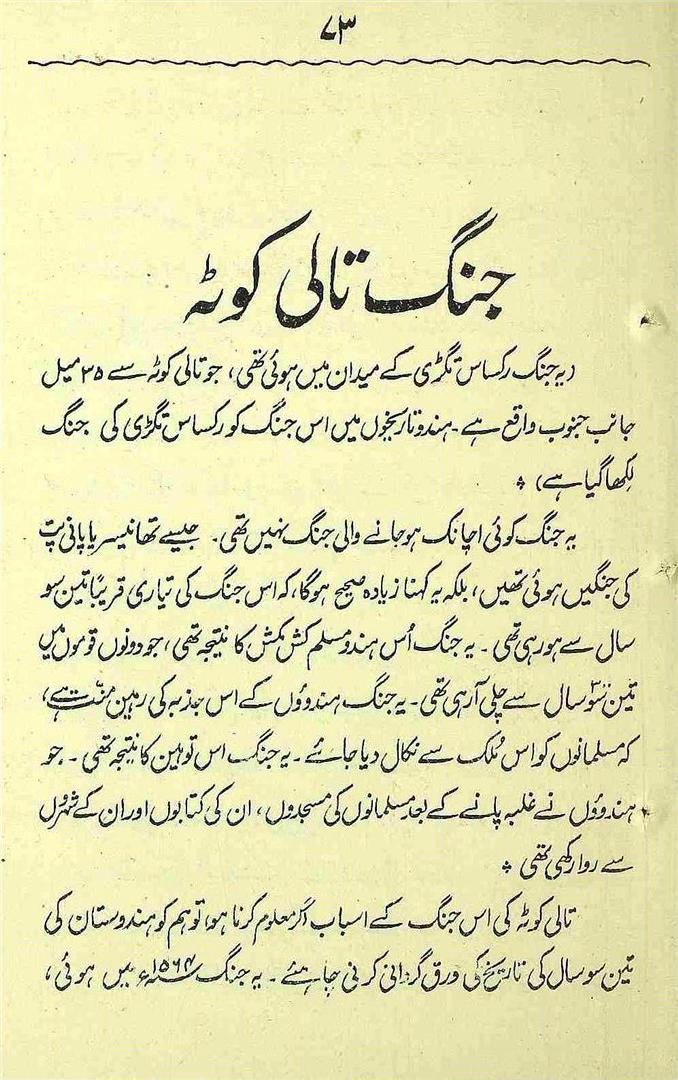 ۷۳
جنگ تالی کوٹہ
(یہ جنگ رکساس تگڑی کے میدان میں ہوئی تھی، جو تالی کوٹہ سے ۳۵ میل
جانب جنوب واقع ہے۔ ہندو تاریخوں میں اس جنگ کو رکساس تگڑی کی جنگ
لکھا گیا ہے)
یہ جنگ کوئی اچانک ہو جانے والی جنگ نہیں تھی۔ جیسے تھانیسر یا پانی پت
کی جنگیں ہوئی تھیں، بلکہ یہ کہنا زیادہ صحیح ہوگا، کہ اس جنگ کی تیاری قریباً تین سو
سال سے ہو رہی تھی۔ یہ جنگ اُس ہندو مسلم کش مکش کا نتیجہ تھی، جو دونوں قوموں میں
تین سو ۳۰۰ سال سے چلی آ رہی تھی۔ یہ جنگ ہندوؤں کے اس جذبہ کی رہین منّت ہے،
کہ مسلمانوں کو اس مُلک سے نکال دیا جائے۔ یہ جنگ اس توہین کا نتیجہ تھی۔ جو
ہندوؤں نے غلبہ پانے کے بعد مسلمانوں کی مسجدوں، ان کی کتابوں اور ان کے شہروں
سے روا رکھی تھی
تالی کوٹہ کی اس جنگ کے اسباب اگر معلوم کرنا ہو، تو ہم کو ہندوستان کی
تین سو سال کی تاریخ کی ورق گردانی کرنی چاہئے۔ یہ جنگ ۱۵۶۴ء میں ہوئی،